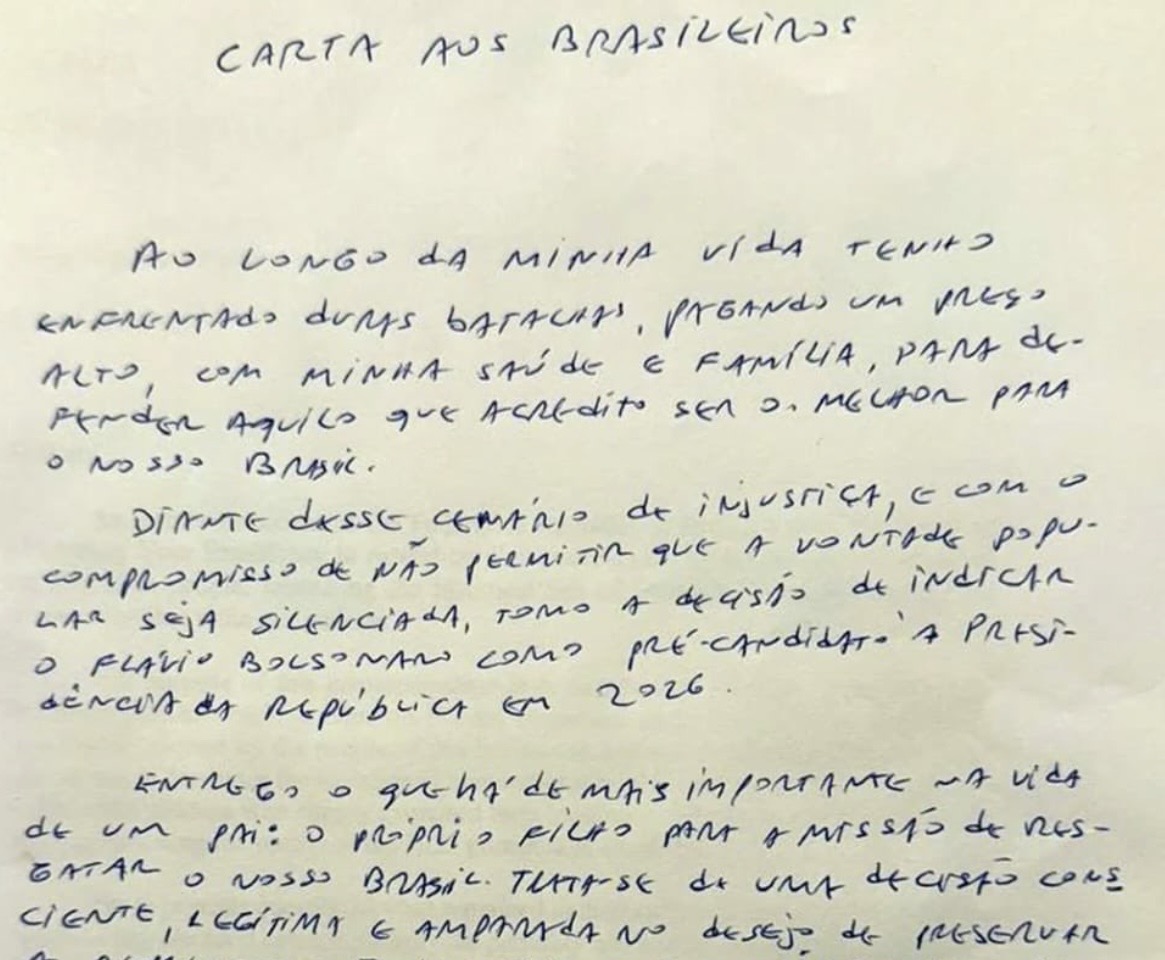 CARTA AOS BRASILEIROS
AO LONGO DA MINHA VIDA TENHO
ENFRENTADO DURAS BATALHAS, PAGANDO UM PREÇO
ALTO, COM MINHA SAÚDE E FAMÍLIA, PARA DE-
FENDER AQUILO QUE ACREDITO SER O MELHOR PARA
O NOSSO BRASIL.
DIANTE DESSE CENÁRIO DE INJUSTIÇA, E COM O
COMPROMISSO DE NÃO PERMITIR QUE A VONTADE POPU-
LAR SEJA SILENCIADA, TOMO A DECISÃO DE INDICAR
O FLÁVIO BOLSONARO COMO PRÉ-CANDIDATO À PRESI-
DÊNCIA DA REPÚBLICA EM 2026.
ENTREGO O QUE HÁ DE MAIS IMPORTANTE NA VIDA
DE UM PAI: O PRÓPRIO FILHO PARA A MISSÃO DE RES-
GATAR O NOSSO BRASIL. TRATA-SE DE UMA DECISÃO CONS
CIENTE, LEGÍTIMA E AMPARADA NO DESEJO DE PRESERVAR